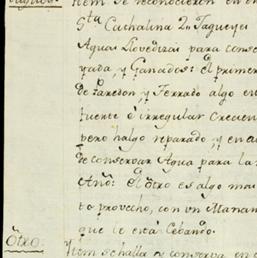 Ittem se reconocieron en el
Sta Cathalina 2n Jagueyes
Aguas Llovedizas para conser
yada, y Ganados: el primero
de Paredon y Terrado algo en
fuerte ó irregular Crecien
pero hálgo reparado, y en
de conservar Agua para la
Año: el Otro es algo mai
to provecho, con un Manan
que le está Cebando.
Otro:
Ittem se halla y conserva en